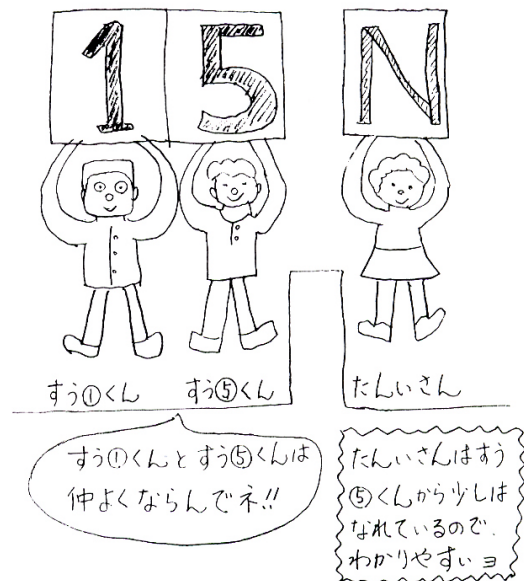 15 N
すう①くん すう⑤くん たんいさん
すう①くんとすう⑤くんは
仲よくならんでネ!!
たんいさんはすう
⑤くんから少しは
なれているので、
わかりやすいヨ